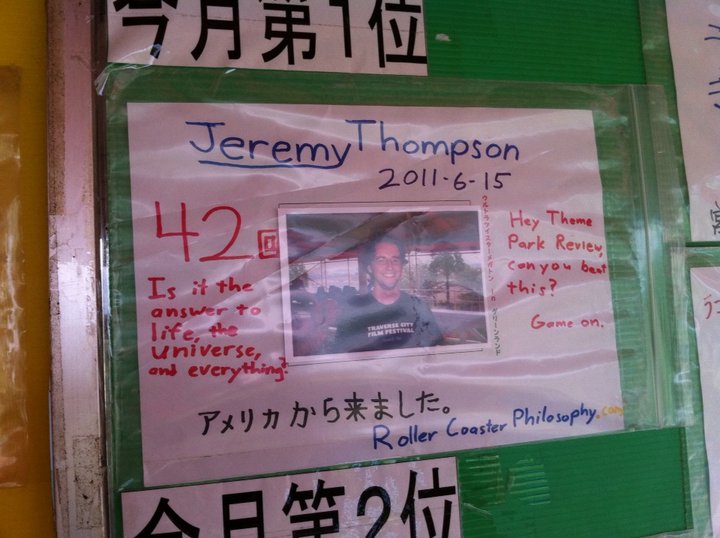 今月第1位
Jeremy Thompson
2011-6-15
42回
Is it the
answer to
life, the
universe,
and everything?
TRAVERSE CITY
FILM FESTIVAL
Hey Theme
Park Review,
can you beat
this?
Game on.
アメリカから来ました。
Roller Coaster Philosophy.com
今月第2位